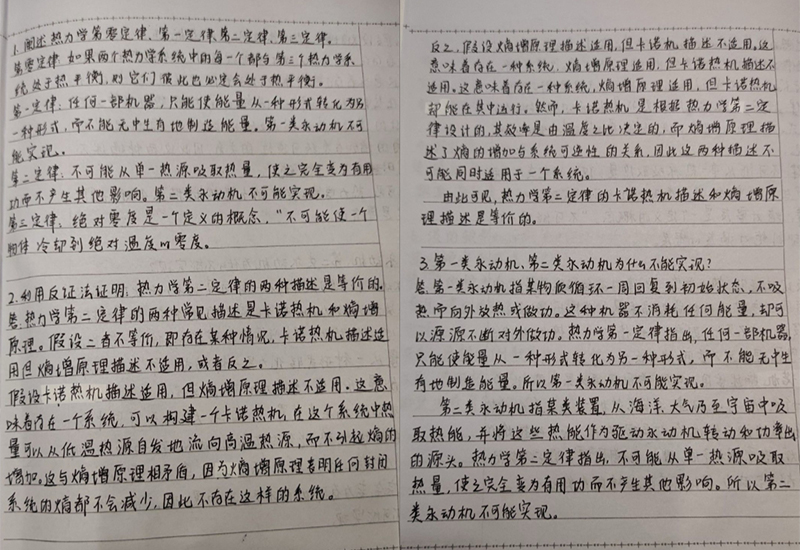 1.阐述热力学第零定律、第一定律、第二定律、第三定律。
第零定律:如果两个热力学系统中的每一个都与第三个热力学系
统处于热平衡,则它们彼此也必定会处于热平衡。
第一定律:任何一部机器,只能使能量从一种形式转化为另
一种形式,而不能无中生有地制造能量。第一类永动机不可
能实现。
第二定律:不可能从单一热源吸取热量,使之完全变为有用
功而不产生其他影响。第二类永动机不可能实现。
第三定律:绝对零度是一个定义的概念,“不可能使一个
物体冷却到绝对温度的零度。
2.利用反证法证明:热力学第二定律的两种描述是等价的。
答:热力学第二定律的两种常见描述是卡诺热机和熵增
原理。假设二者不等价,即存在某种情况,卡诺热机描述适
用但熵增原理描述不适用,或者反之。
假设卡诺热机描述适用,但熵增原理描述不适用。这意
味着存在一个系统,可以构建一个卡诺热机,在这个系统中热
量可以从低温热源自发地流向高温热源,而不引起熵的
增加。这与熵增原理相矛盾,因为熵增原理表明任何封闭
系统的熵都不会减少,因此不存在这样的系统。
反之,假设熵增原理描述适用,但卡诺机描述不适用。这
意味着存在一种系统,熵增原理描述适用,但卡诺热机描述不
适用。这意味着存在一种系统,熵增原理适用,但卡诺热机
却能在其中运行。然而,卡诺热机是根据热力学第二定
律设计的,其效率是由温度之比决定的,而熵增原理描
述了熵的增加与系统可逆性的关系,因此这两种描述不
可能同时适用于一个系统。
由此可见,热力学第二定律的卡诺热机描述和熵增原
理描述是等价的。
3.第一类永动机、第二类永动机为什么不能实现?
答:第一类永动机指某物质循环一周回复到初始状态,不吸
热而向外放热或做功。这种机器不消耗任何能量,却可
以源源不断对外做功。热力学第一定律指出,任何一部机器,
只能使能量从一种形式转化为另一种形式,而不能无中生
有地制造能量。所以第一类永动机不可能实现。
第二类永动机指某类装置,从海洋、大气乃至宇宙中吸
取热能,并将这些热能作为驱动永动机转动和功率出
的源头。热力学第二定律指出,不可能从单一热源吸取
热量,使之完全变为有用功而不产生其他影响。所以第二
类永动机不可能实现。